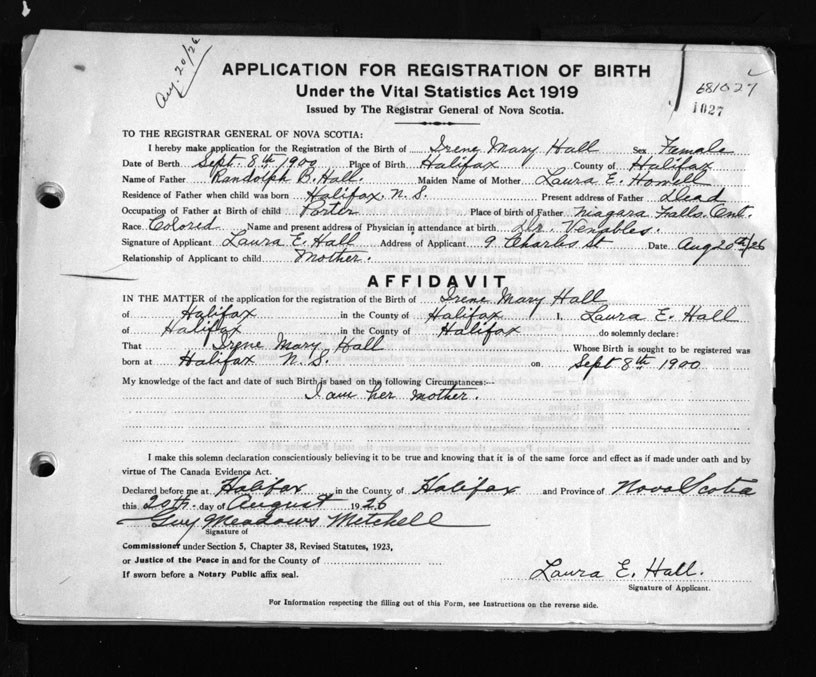 Aug. 20/26
681027
1027
APPLICATION FOR REGISTRATION OF BIRTH
Under the Vital Statistics Act 1919
Issued by The Registrar General of Nova Scotia.
TO THE REGISTRAR GENERAL OF NOVA SCOTIA:
I hereby make application for the Registration of the Birth of Irene Mary Hall Sex Female
Date of Berth Sept. 8th 1900 Place of Birth Halifax County of Halifax
Name of Father Randolph B. Hall. Maiden Name of Mother Laura E. Howell
Residence of Father when child was born Halifax. N. S. Present address of Father Dead
Occupation of Father at Birth of child Porter Place of birth of Father Niagara Falls. Ont.
Race. Colored Name and present address of Physician in attendance at birth Dr. Venables.
Signature of Applicant Laura E. Hall Address of Applicant 9 Charles St Date Aug 20th/26
Relationship of Applicant to child Mother.
AFFIDAVIT
IN THE MATTER of the application for the registration of the Birth of Irene Mary Hall
of Halifax in the County of Halifax I, Laura E. Hall
of Halifax in the County of Halifax do solemnly declare:
That Irene Mary Hall Whose Birth is sought to be registered was
born at Halifax N. S. on Sept 8th 1900
My knowledge of the fact and date of such Birth is based on the following Circumstances:—
I am her mother.
I make this solemn declaration conscientiously believing it to be true and knowing that it is of the same force and effect as if made under oath and by
virtue of The Canada Evidence Act.
Declared before me at Halifax in the County of Halifax and Province of Nova Scotia
this 20th day of August 1926
Guy Meadows Mitchell
Signature of
Commissioner under Section 5, Chapter 38, Revised Statutes, 1923,
or Justice of the Peace in and for the County of
If sworn before a Notary Public affix seal.
Laura E. Hall.
Signature of Applicant.
For Information respecting the filling out of this Form, see Instructions on the reverse side.